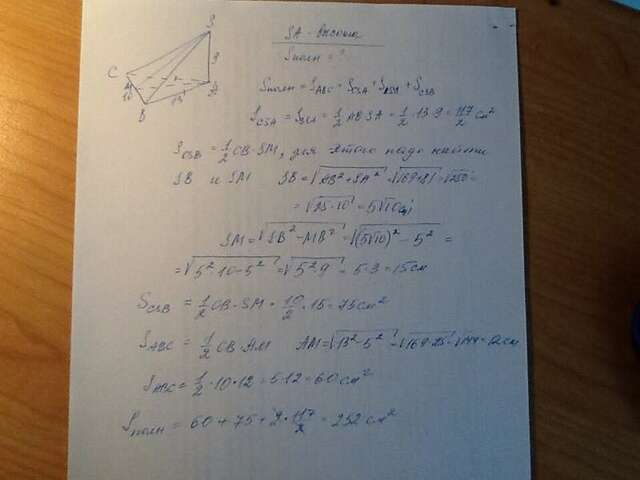 S
C
9
M
10
A
B
13
SA - высота
Sполн = ?
Sполн = SABC + SCSA + SASB + SCSB
SCSA = = 1/2 AB·SA = 1/2·13·9 = 117/2 см²
SCSB = 1/2 CB·SM, для этого надо найти
SB и SM SB = √(AB² + SA²) = √(169+81) = √250 =
= √(25·10) = 5√10 см
SM = √(SB² - MB²) = √((5√10)² - 5²) =
= √(5²·10 - 5²) = √(5²·9) = 5·3 = 15 см
SCSB = 1/2 CB·SM = 10/2·15 = 75 см²
SABC = 1/2 CB·AM AM = √(13² - 5²) = √(169-25) = √144 = 12 см
SABC = 1/2·10·12 = 5·12 = 60 см²
Sполн = 60 + 75 + 2·117/2 = 252 см²